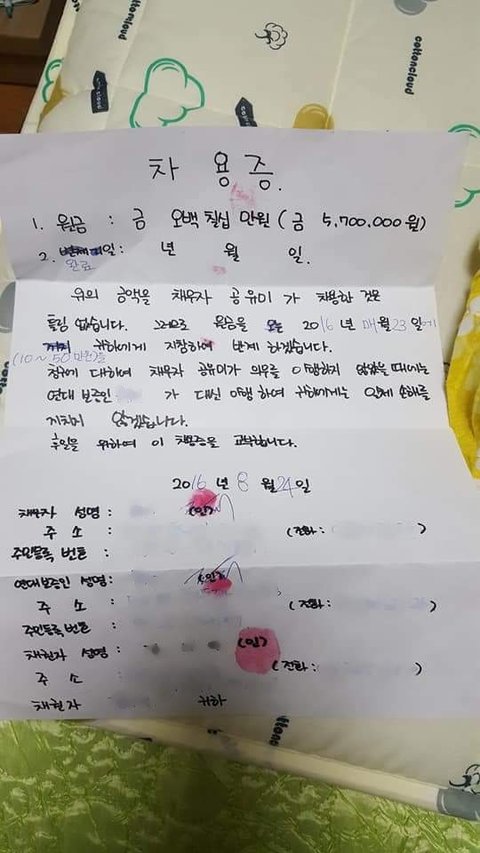 cottoncloud
cottoncloud
차 용증.
1. 원금 : 금 오백 칠십 만원 ( 금 5,700,000원)
2. 일 : 년 월 일.
완료
위의 금액을 채무자 공유미 가 차용한 것은
틀림 없습니다. 그러므로 원금을 2016년 매월 23일에
귀하에게 지참하여 변제 하겠습니다.
(10~50만원)을
참에 대하여 채무자 공유미가 의무를 이행하지 않았을 때에는
연대 보증인 가 대신 이행 하여 귀하에게는 일체 손해를
끼치지 않겠습니다.
후일을 위하여 이 차용증을 교부합니다.
2016년 8월 24일
채무자 성명 : (인)
주 소 : (전화 : )
주민등록 번호 :
연대보증인 성명 : (인)
주 소 : (전화 : )
주민등록 번호 :
채권자 성명 : (인)
주 소 : (전화 : )
채권자 귀하
cottoncloud